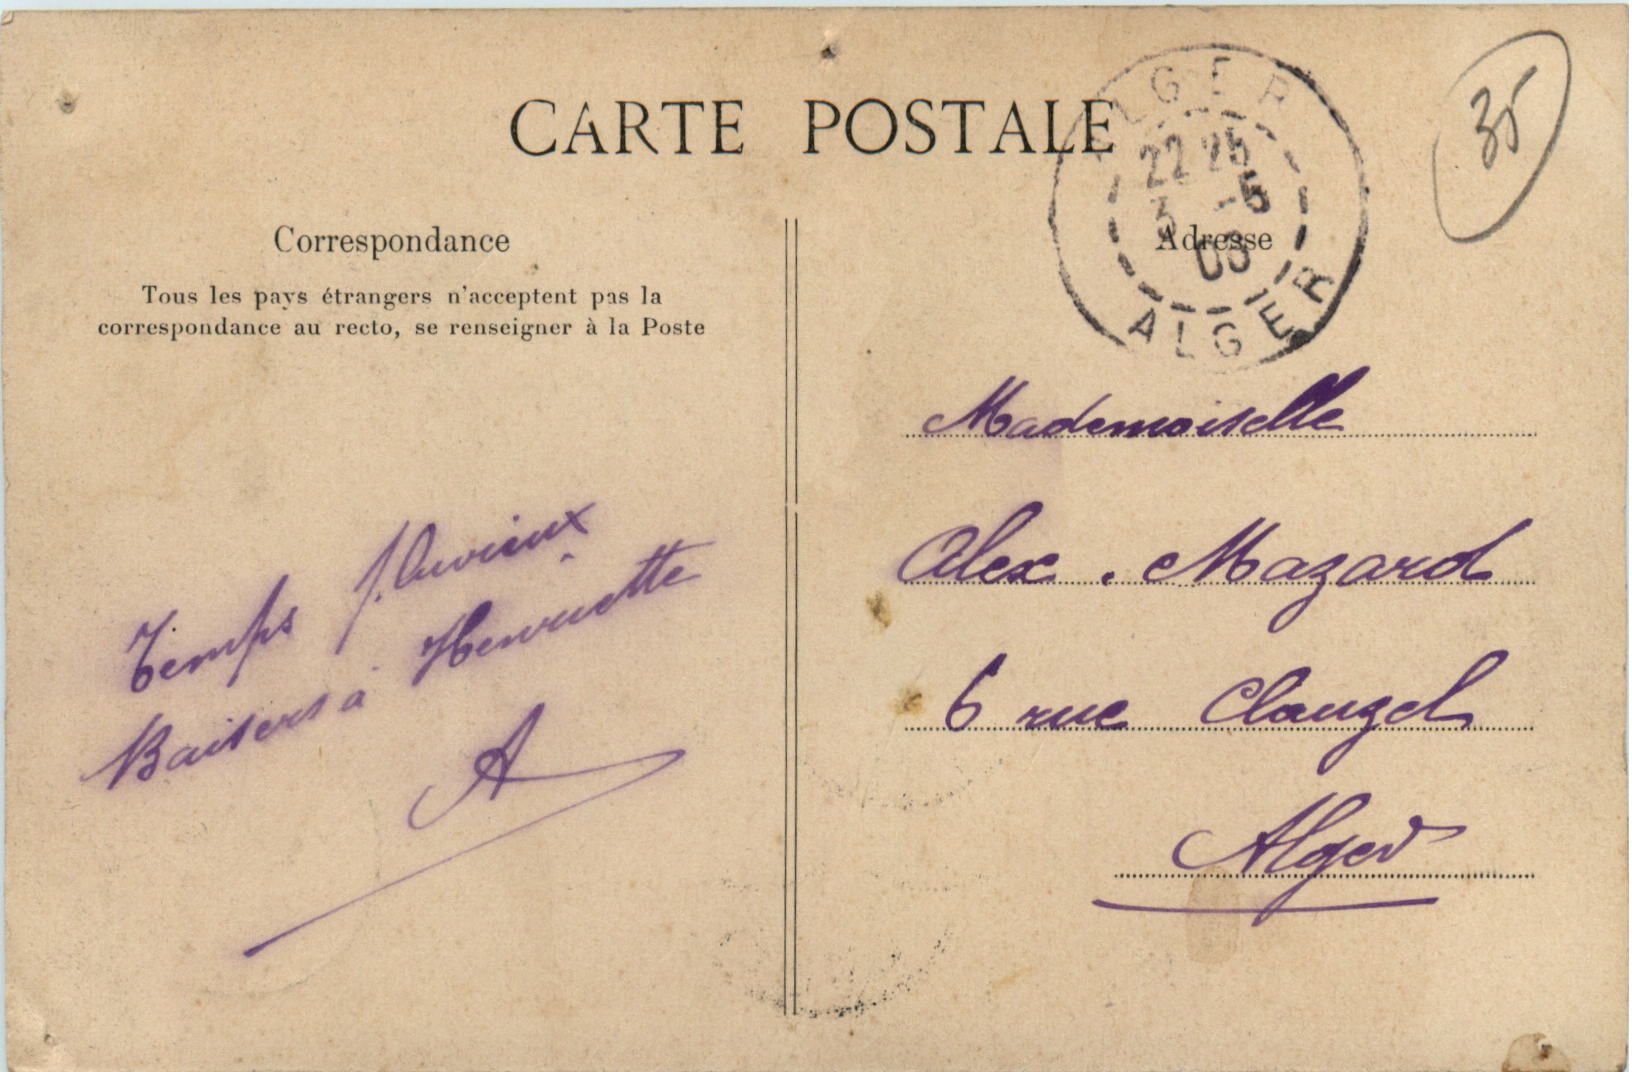 CARTE POSTALE
Correspondance
Tous les pays étrangers n'acceptent pas la
correspondance au recto, se renseigner à la Poste
Temps pluvieux
Baisers à Henriette
A
ALGER
22 25
3 -5
ALGER
35
Adresse
Mademoiselle
Alex. Mazard
6 rue Clauzel
Alger